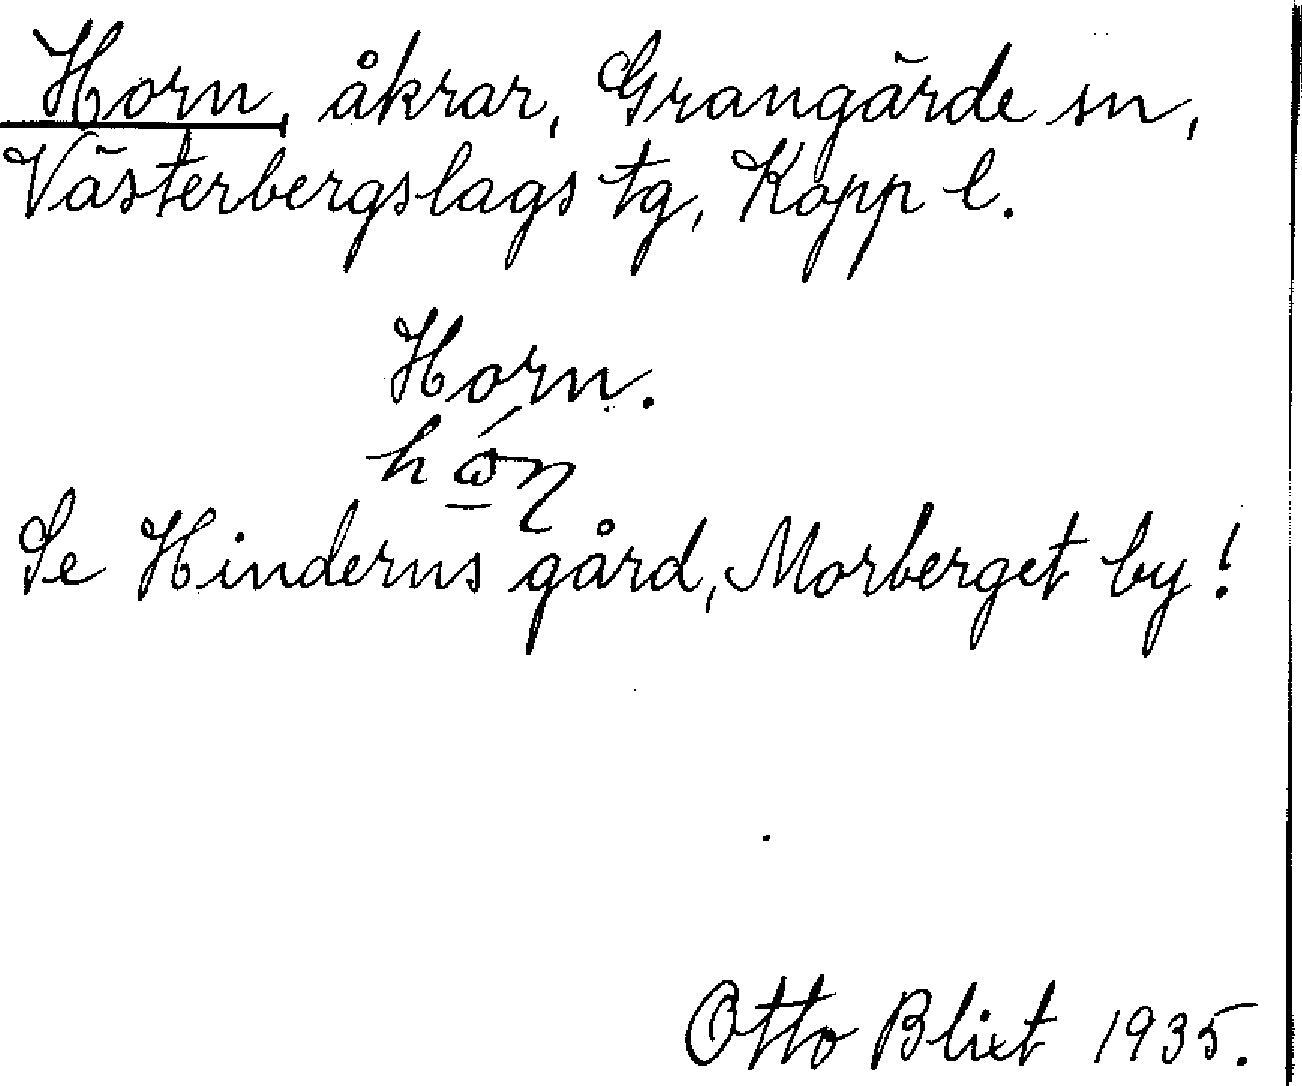 Horn, åkrar, Grangärde sn,
Västerbergslags tg, Kopp l.
Horn.
Se Hinderns gård, Morberget by!
Otto Blixt 1935.